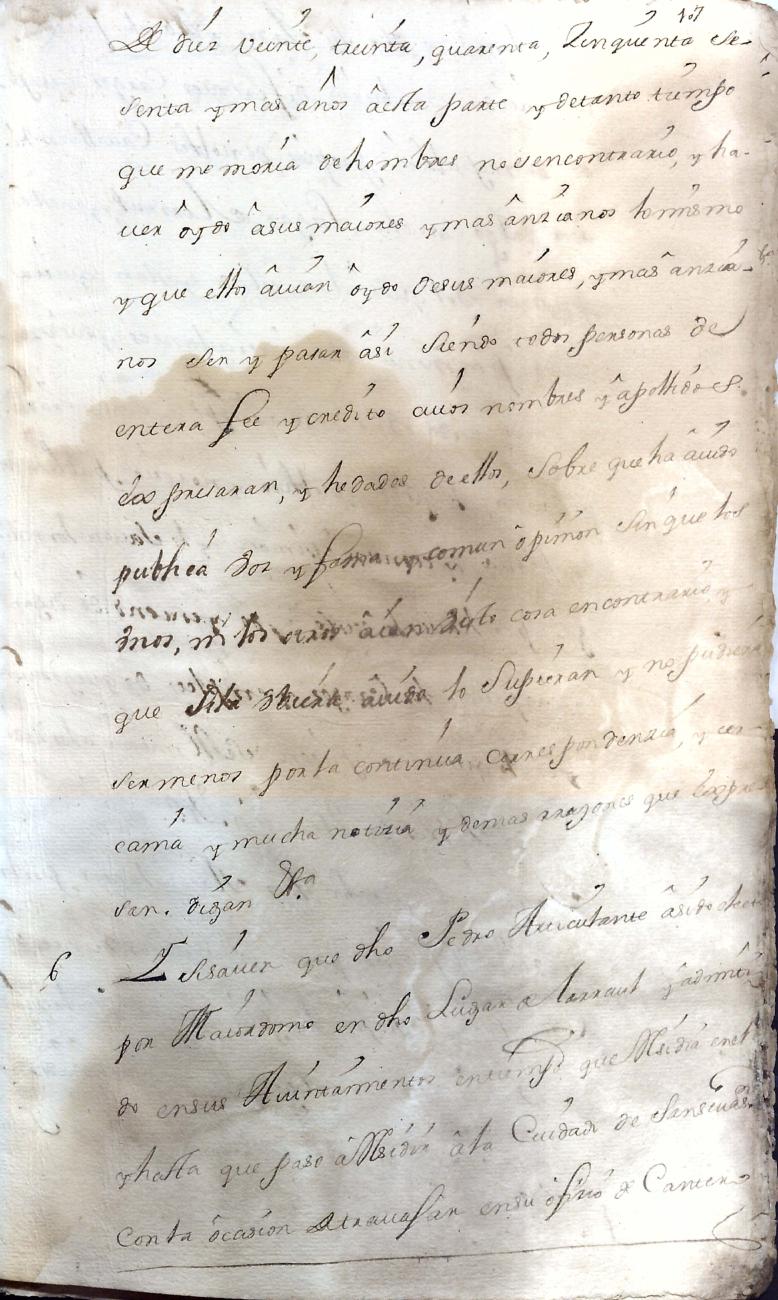 107
De diez veinte, treinta, quarenta, zinquenta se-
senta y mas años âesta parte y detanto tiempo
que memoria dehombres noesencontrario, y ha-
ver ôydo âsus maiores y mas ânzianos lo mismo
y que ellos âuian ôydo desus maiores, y mas ânzia-
nos ser y pasar âsi siendo todos personas de
entera fee y credito cuios nombres y âpellidos
êxpresaran, y hedades de ellos, sobre que ha âuido
publica voz y fama y comun ôpinion sin que los
vnos, ni los otros cosa encontrario y
que si la hubiera âuido lo supieran y no pudiera
ser menos por la continua correspondenzia, y cer-
cania y mucha notizia y demas rrazones que êxpre-
san. digan &a
6 Y si saven que dho Pedro âsido electo
por Maiordomo en dho Lugar de y âdmiti-
do ensus Aiuntamientos entiempo que Residia enel
y hasta que paso â Residir â la Ciudad de Sansevas.n
con la ôcasion de travajar en su ôfizio de Cantero